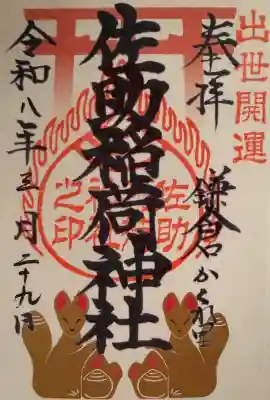 出世開運
奉拝
鎌倉かくれ里
佐助稲荷神社
令和八年三月二十九日
佐助
神社
之印